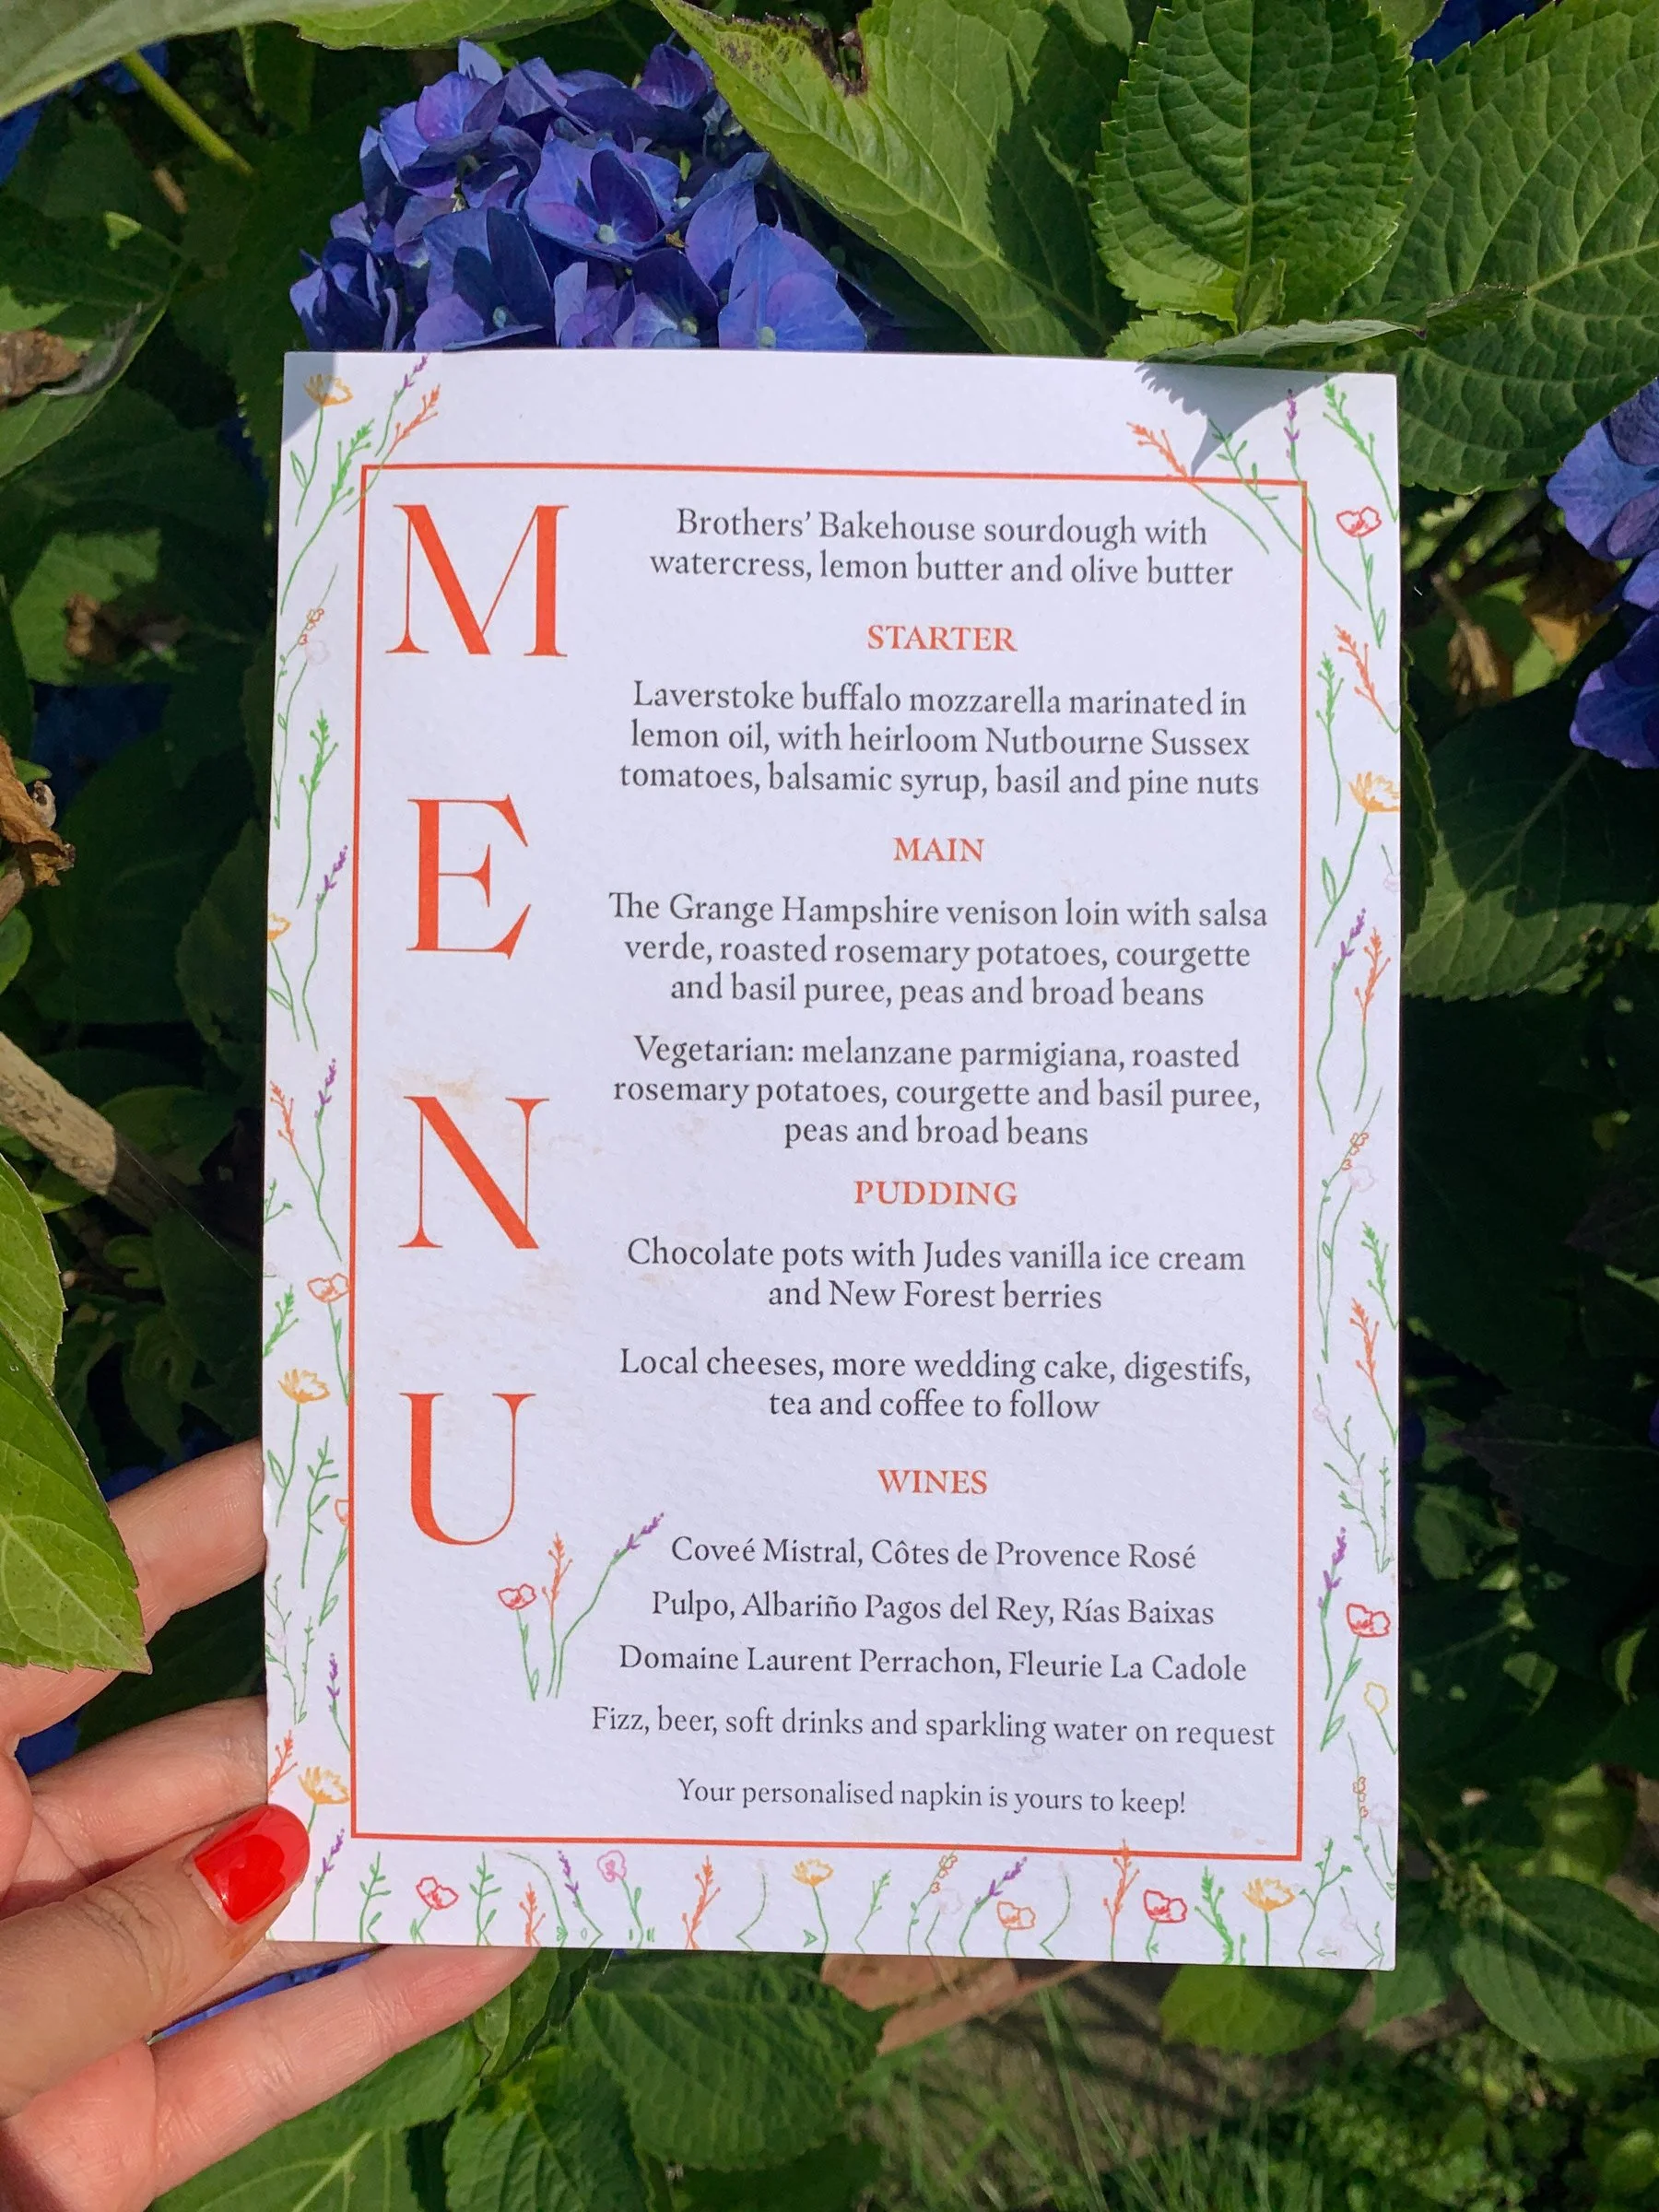 MENU
Brothers' Bakehouse sourdough with
watercress, lemon butter and olive butter
STARTER
Laverstoke buffalo mozzarella marinated in
lemon oil, with heirloom Nutbourne Sussex
tomatoes, balsamic syrup, basil and pine nuts
MAIN
The Grange Hampshire venison loin with salsa
verde, roasted rosemary potatoes, courgette
and basil puree, peas and broad beans
Vegetarian: melanzane parmigiana, roasted
rosemary potatoes, courgette and basil puree,
peas and broad beans
PUDDING
Chocolate pots with Judes vanilla ice cream
and New Forest berries
Local cheeses, more wedding cake, digestifs,
tea and coffee to follow
WINES
Coveé Mistral, Côtes de Provence Rosé
Pulpo, Albariño Pagos del Rey, Rías Baixas
Domaine Laurent Perrachon, Fleurie La Cadole
Fizz, beer, soft drinks and sparkling water on request
Your personalised napkin is yours to keep!